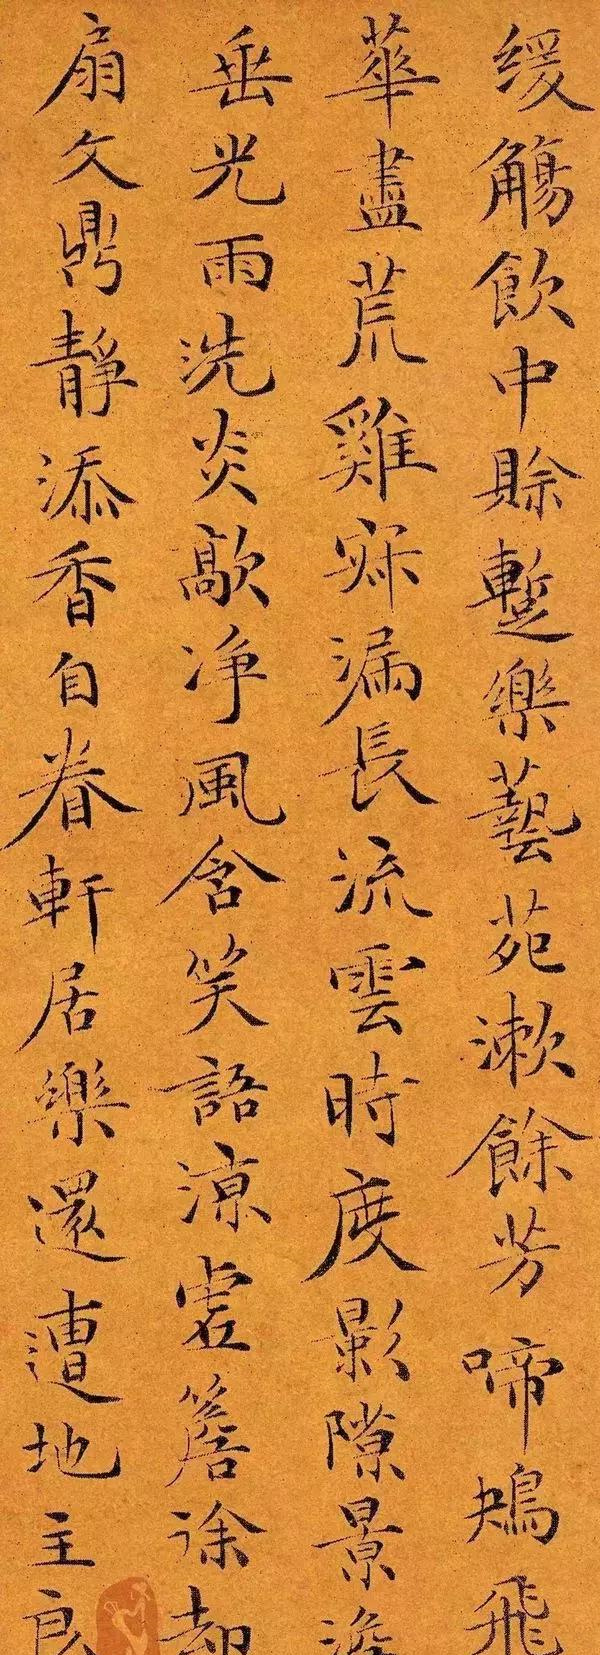 缓觴飲中賖蹔樂藝苑漱餘芳啼鴂飛
華盡荒雞寐漏長流雲時度影隙景澹
垂光雨洗炎歊净風含笑語涼虛簷徐却
扇久鼎靜添香自眷軒居樂還遭地主良